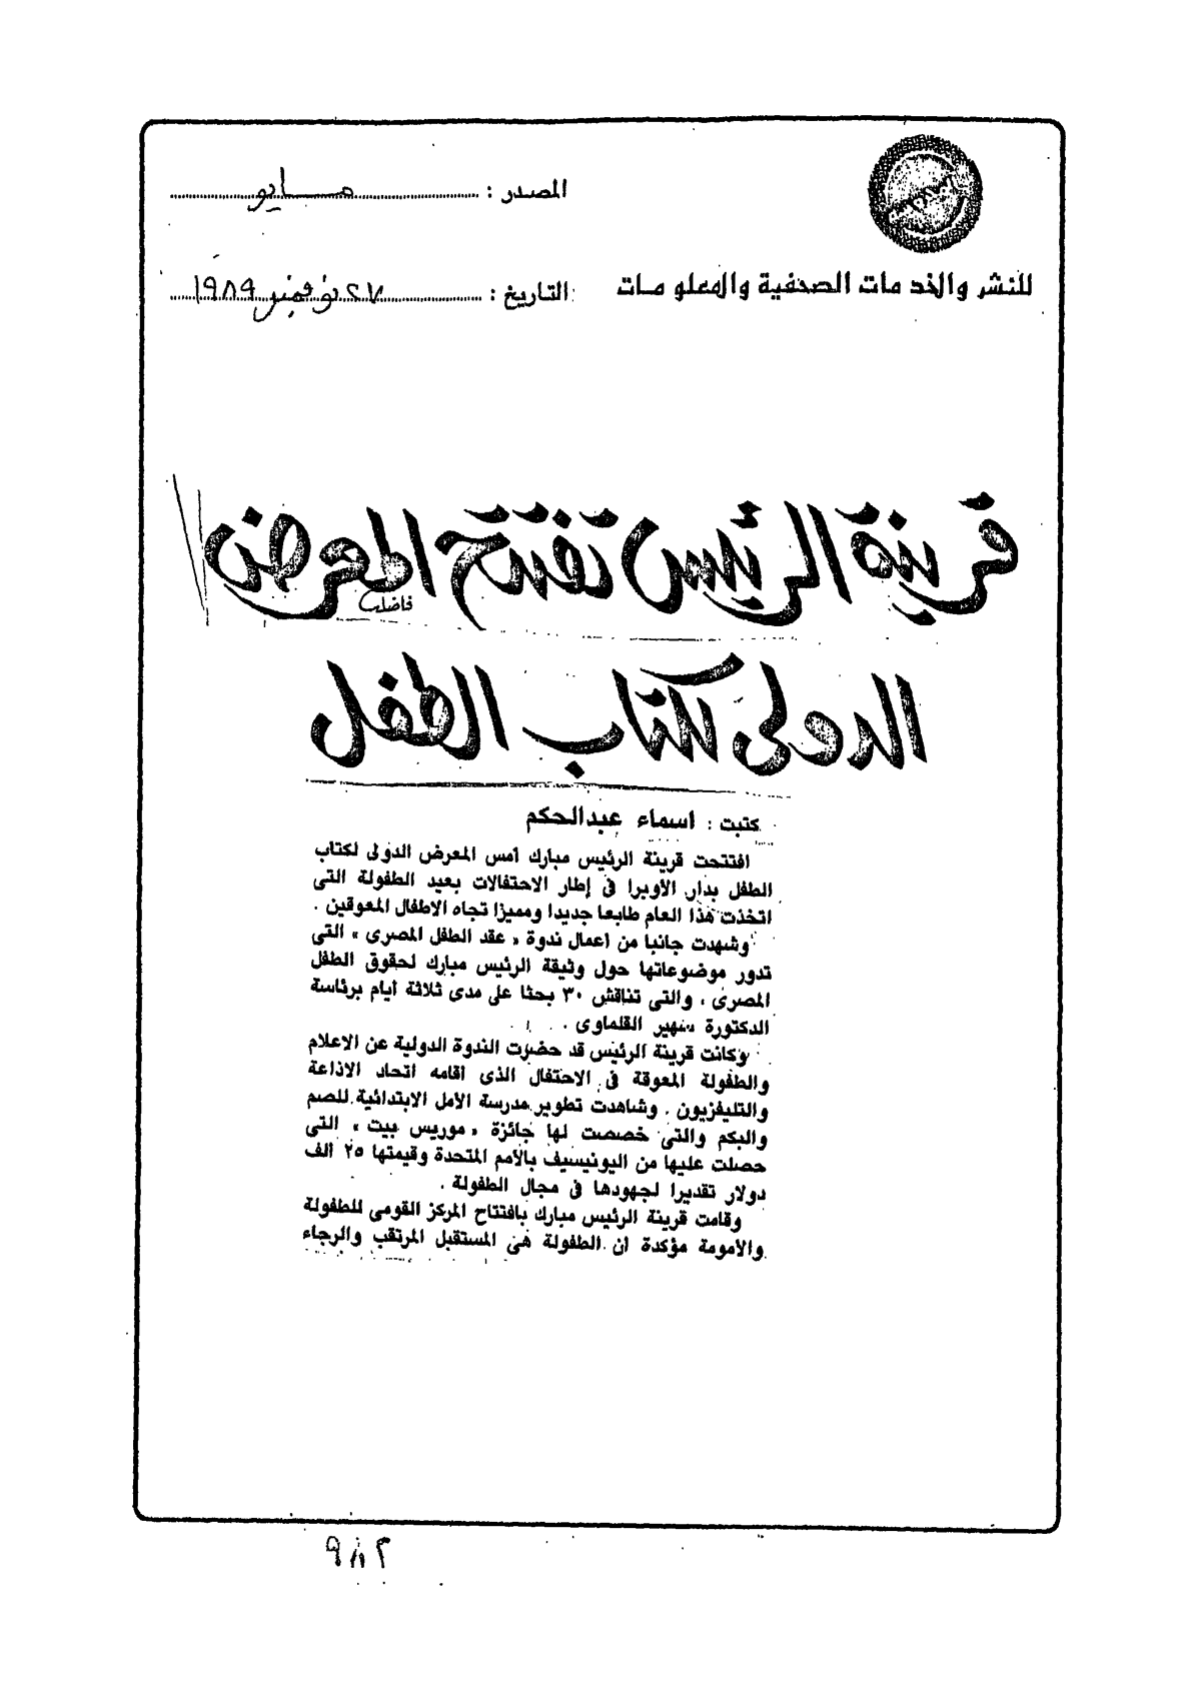 المصدر : مايو
للنشر والخدمات الصحفية والمعلومات
التاريخ : ٢٧ نوفمبر ١٩٨٩
قرينة الرئيس تفتتح المعرض
الدولى لكتاب الطفل
كتبت : اسماء عبدالحكم
افتتحت قرينة الرئيس مبارك أمس المعرض الدولى لكتاب
الطفل بدار الأوبرا فى إطار الاحتفالات بعيد الطفولة التى
اتخذت هذا العام طابعا جديدا ومميزا تجاه الاطفال المعوقين .
وشهدت جانبا من اعمال ندوة « عقد الطفل المصرى » التى
تدور موضوعاتها حول وثيقة الرئيس مبارك لحقوق الطفل
المصرى ، والتى تناقش ٣٠ بحثا على مدى ثلاثة أيام برئاسة
الدكتورة سهير القلماوى .
وكانت قرينة الرئيس قد حضرت الندوة الدولية عن الاعلام
والطفولة المعوقة فى الاحتفال الذى اقامه اتحاد الاذاعة
والتليفزيون . وشاهدت تطوير مدرسة الأمل الابتدائية للصم
والبكم والتى خصصت لها جائزة « موريس بيت » التى
حصلت عليها من اليونيسيف بالأمم المتحدة وقيمتها ٢٥ ألف
دولار تقديرا لجهودها فى مجال الطفولة .
وقامت قرينة الرئيس مبارك بافتتاح المركز القومى للطفولة
والأمومة مؤكدة ان الطفولة هى المستقبل المرتقب والرجاء